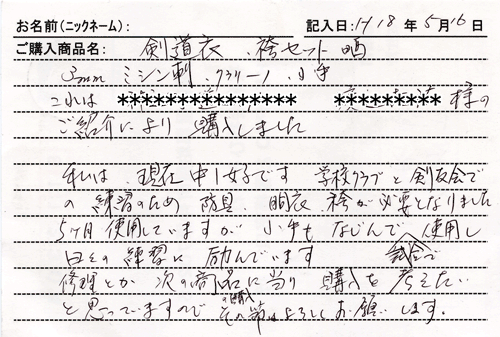 お名前(ニックネーム): 記入日:H18年5月16日
ご購入商品名: 剣道衣、袴セット
3mmミシン刺、クラリーノ、小手
これは ＊＊＊＊＊＊＊＊＊＊＊＊＊＊＊ ＊＊＊＊＊＊＊＊＊様の
ご紹介により購入しました
私は、現在中1女子です 学校クラブと剣友会で
の練習のため 防具、胴衣、袴が必要となりました
5ヶ月使用していますが 小手もなじんで使用し
日々の練習に励んでいます 試合で
修理とか次の商品に当り 購入を考えたい
と思っていますので その節はよろしくお願いします。
の購入